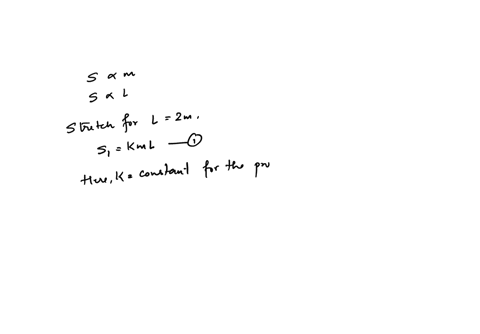 S ∝ m
S ∝ L
Stretch for L = 2m.
S₁ = KmL —①
Here, K = constant for the pro